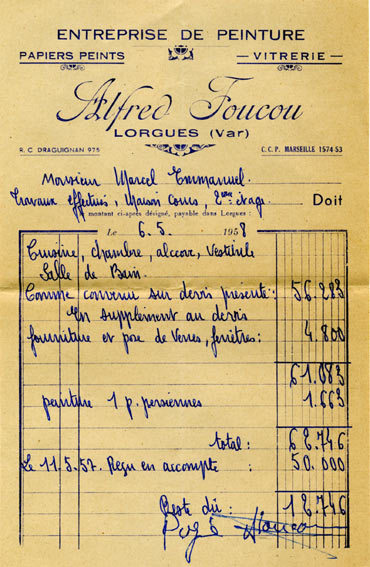 ENTREPRISE DE PEINTURE
PAPIERS PEINTS — VITRERIE —
Alfred Foucou
LORGUES (Var)
R. C. DRAGUIGNAN 975 C. C. P. MARSEILLE 1574-53
Monsieur Marcel Emmanuel.
Travaux effectués, Maison Cours, 2ème étage. Doit
montant ci-après désigné, payable dans Lorgues :
Le 6. 5. 1958
Cuisine, chambre, alcove, Vestibule
Salle de Bain.
Comme convenu sur devis présenté : 56.283
En supplement au devis
fourniture et pose de Verres, fenêtres : 4.800
61.083
peinture 1 p. persiennes 1.663
total : 62.746
Le 11.5.57. Reçu en accompte : 50.000
Reste dû : 12.746
Payé Foucou